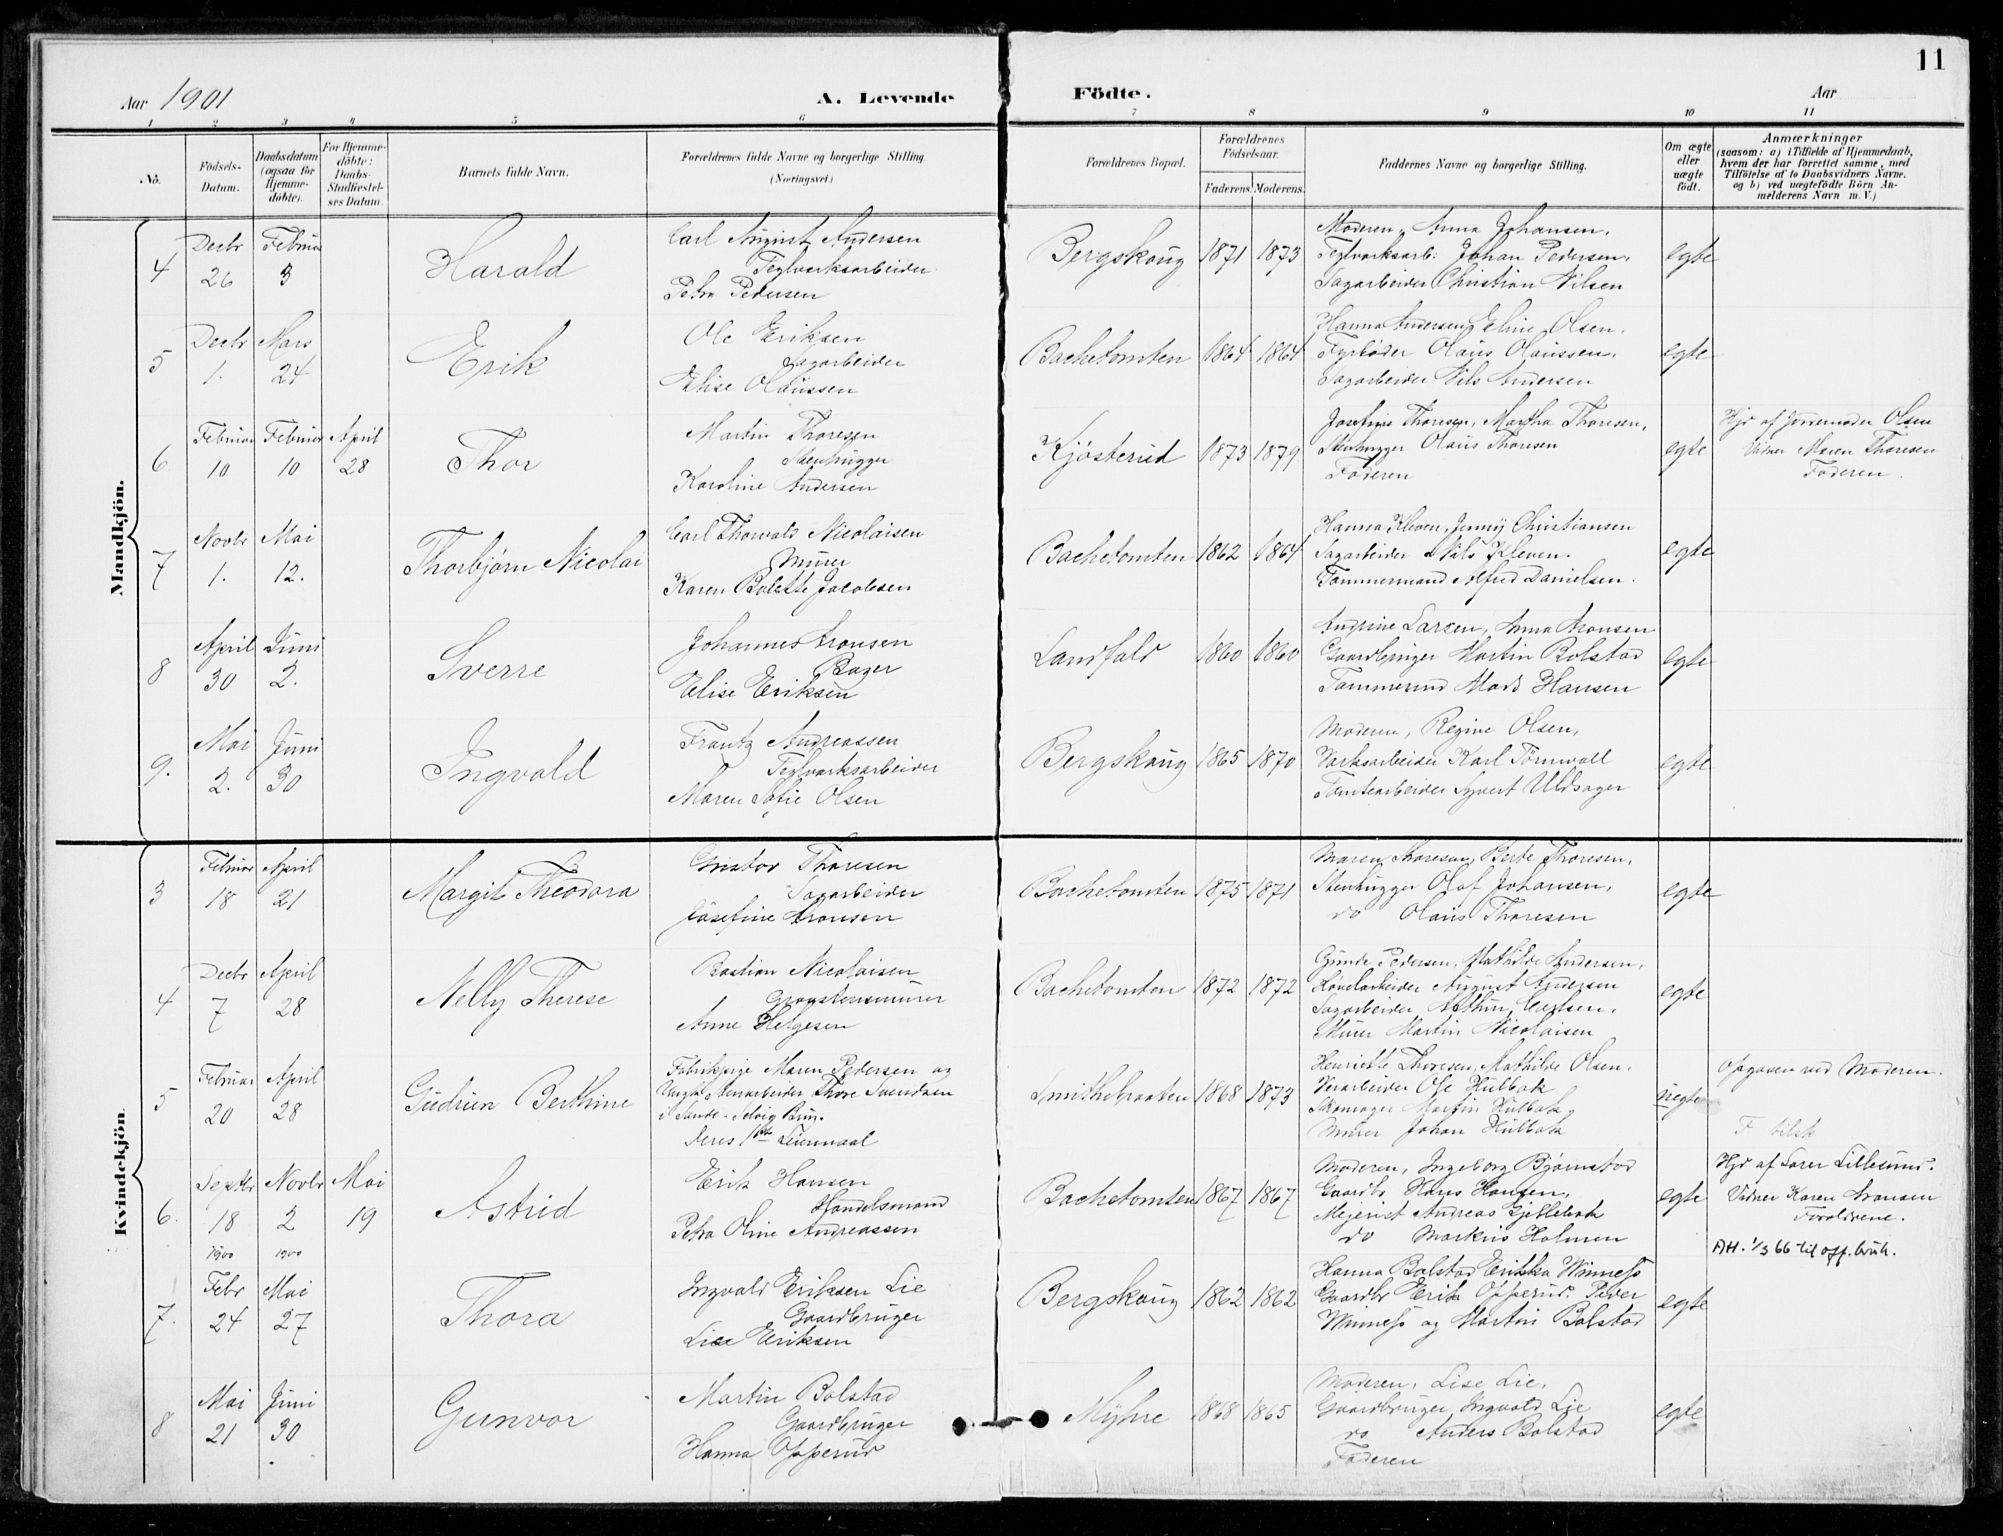 11
Aar 1901
A. Levende Födte.
Aar
1 2 3 4 5 6 7 8 9 10 11
No.
Födsels-Datum.
Daabsdatum (ogsaa for Hjemme-döbte).
For Hjemme-döbte: Daabs-Stadfæstel-ses Datum.
Barnets fulde Navn.
Forældrenes fulde Navne og borgerlige Stilling. (Næringsvei.)
Forældrenes Bopæl.
Forældrenes Födselsaar.
Faderens. Moderens.
Faddernes Navne og borgerlige Stilling.
Om ægte eller uægte födt.
Anmærkninger
(saasom: a) i Tilfælde af Hjemmedaab,
hvem der har forrettet samme, med
Tilföielse af to Daabsvidners Navne,
og b) ved uægtefödte Börn An-
melderens Navn m. V.)
Mandkjön.
4 Decbr 26 Februar 3 Harald
Carl August Andersen
Teglværksarbeider
Petra Pedersen
Bergskoug 1871 1873
Moderen, Anna Johansen,
Teglværksarb: Johan Pedersen,
Sagarbeider Christian Nilsen
egte
5 Decbr 1. Mars 24 Erik
Ole Eriksen
Sagarbeider
Elise Olaussen
Bachetomten 1864 1864
Hanna Andersen, Eline Olsen,
Fyrbøder Olaus Olaussen,
Sagarbeider Nils Andersen
egte
6 Februar 10 Februar 10 April 28 Thor
Martin Thoresen
Stenhugger
Karoline Andersen
Kjøsterud 1873 1879
Josefine Thoresen, Martha Thoresen,
Stenhugger Olaus Thoresen
Faderen
egte
Hjd af Jordemoder Olsen
Vidner Maren Thoresen
Faderen.
7 Novbr 1. Mai 12. Thorbjørn Nicolai
Carl Thorvald Nicolaisen
Murer
Karen Bolette Jacobsen
Bachetomten 1862 1864
Hanna Kleven, Jenny Christiansen
Sagarbeider Nils Kleven.
Tømmermand Alfred Danielsen.
egte
8 April 30 Juni 2. Sverre
Johannes Aronsen
Bager
Elise Eriksen
Landfald 1860 1860
Larsen, Anna Aronsen
Gaardbruger Martin Bolstad
Mads Hansen
egte
9. Mai 2. Juni 30 Ingvald
Frantz Andreassen
Teglværksarbeider
Maren Sofie Olsen
Bergskoug 1865 1870
Moderen, Regine Olsen,
Værksarbeider Karl Törnvall
Tomtearbeider Syvert
egte
Kvindekjön.
3 Februar 18 April 21 Margit Theodora
Gustav Thoresen
Sagarbeider
Josefine Aronsen
Bachetomten 1875 1871
Maren Thoresen, Berte Thoresen,
Stenhugger Olaf Johansen,
do Olaus Thoresen
egte
4 Decbr 7 April 28 Nelly Therese
Bastian Nicolaisen
Graastensmurer
Anne Helgesen
Bachetomten 1872 1872
Gunda Pedersen, Mathilde Andersen,
Høvelarbeider August Andersen
Sagarbeider Arthur Carlsen,
Murer Martin Nicolaisen
egte
5 Februar 20 April 28 Gudrun Berthine
Fabrikpige Maren Pedersen og
Ungk. Stenarbeider Thore Svendsen
i Sande - Selvig Brug.
Deres 1ste Leiermaal
Smithebraaten 1868 1873
Henriette Thoresen, Mathilde Olsen,
Ole Hulbak
Skomager Martin Hulbak,
Murer Johan Hulbak
uegte
Opgaven ved Moderen.
F tilsk
6. Septbr 18 1900 Novbr 2 1900 Mai 19 Astrid
Erik Hansen
Handelsmand
Petra Oline Andreassen
Bachetomten 1867 1867
Moderen, Ingeborg Bjørnstad
Gaardbr. Hans Hansen,
Meierist Andreas Gjellebæk
do Markus Holmen
egte
Hjd af Lærer Lillesund.
Vidner Karen Aronsen
Forældrene.
AH. 1/3 66 til off. bruk.
7. Febr 24 Mai 27 Thora
Ingvald Eriksen Lie
Gaardbruger
Lise Eriksen
Bergskoug 1862 1862
Hanna Bolstad Erikka Winness
Gaardbr Erik Opperud, Peder
Winness og Martin Bolstad
egte
8 Mai 21 Juni 30 Gunvor
Martin Bolstad
Gaardbruger
Hanna Opperud
Myhre 1868 1865
Moderen, Lise Lie,
Gaardbruger, Ingvald Lie
do Anders Bolstad
Faderen
egte